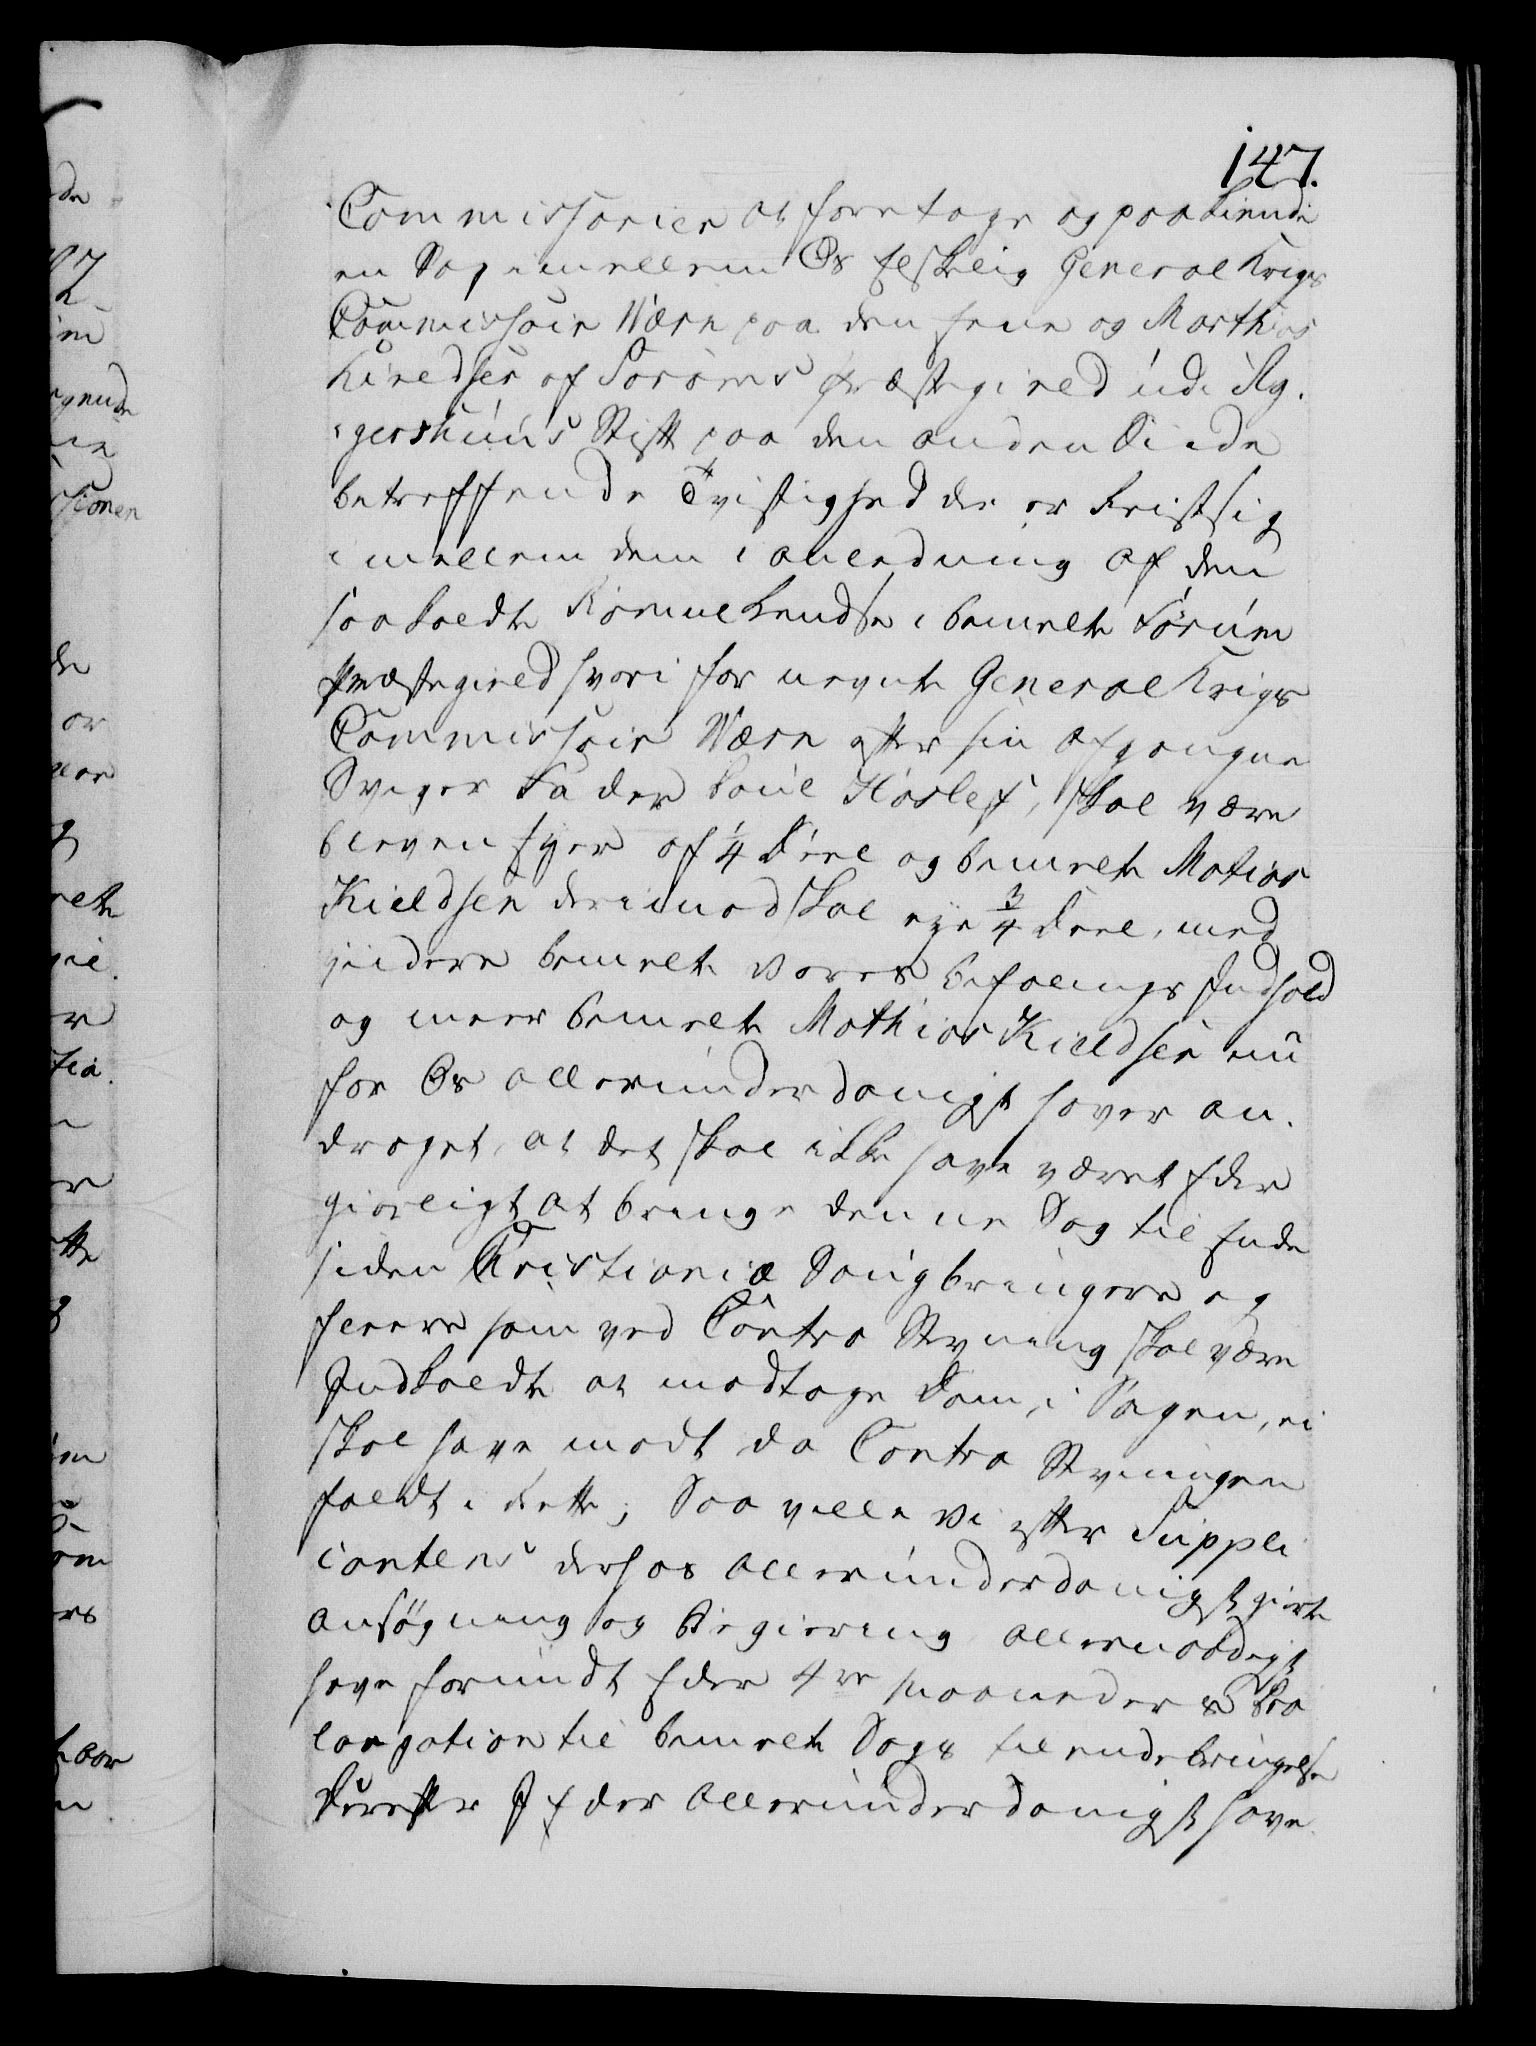 147.
Commissarier at foretage og paakiende
en Sag imellem Os Elskelig General Krigs
Commissair Værn paa den Eene og Mathias
Kieldsen af Sørums Præstegield udi Ag¬
gershuus Stift paa den anden Siide
betreffende Tvistighed der er Reist sig
imellem dem i anledning af den
saa kaldte Rømue kendse i bemelte Sørum
Præstegield hvori for nevnte General Krigs
Commissair Værn efter sin afgangne
Sviger Fader Poul Høslef, skal være
bleven Eyer af 1/4 Deel og bemelte Matias
Kieldsen derimod skal eye 3/4 Deel, med
viidere bemelte Vores befalings Indhold
og meer bemelte Mathias Kieldsen nu
for Os allerunderdanigst haver an¬
draget, at det skal ikke have været Eder
giørligt at bringe denne Sag til Ende
siden Christianiæ Saugbrugere og
fleere som ved Contra Stevning skal være
Indkaldte at modtage Dom, i Sagen, ei
skal have mødt da Contra Stevningen
faldt i Rette; Saa ville Vi efter Suppli
cantens derhos allerunderdanigst giorte
ansøgning og Begiering allernaadigst
have forundt Eder 4re Maaneders Pro
longation til bemelte Sags tilendebringelse
Derefter I Eder allerunderdanigst have